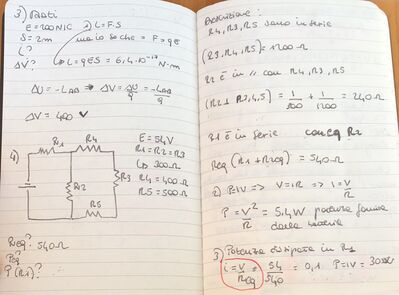 3) Dati
E = 200 N/C
L = F·S
S = 2m
ma io so che → F = qE
L?
ΔV?
L = qES = 6,4·10⁻¹⁷ N·m
ΔU = -LAB ⇒ ΔV = ΔU/q = -LAB/q
ΔV = 400 V
4)
R1
R4
R2
R3
R5
E = 54V
R1 = R2 = R3
↳ 300Ω
R4 = 400Ω
R5 = 500Ω
Req? 540Ω
P(R1)?
R4, R3, R5 sono in serie
(R3, R4, R5) = 1200Ω
R2 è in // con R4, R3, R5
= 1/300 + 1/1200 = 240Ω
R1 è in serie con eq R2
Req (R1 + R2eq) = 540Ω
2) P = iV => V = iR => i = V/R
P = V²/R = 5.4W potenza fornita
dalla batteria
3) Potenza dissipata in R1
i = V/Req = 54/540 = 0,1 P = iV =